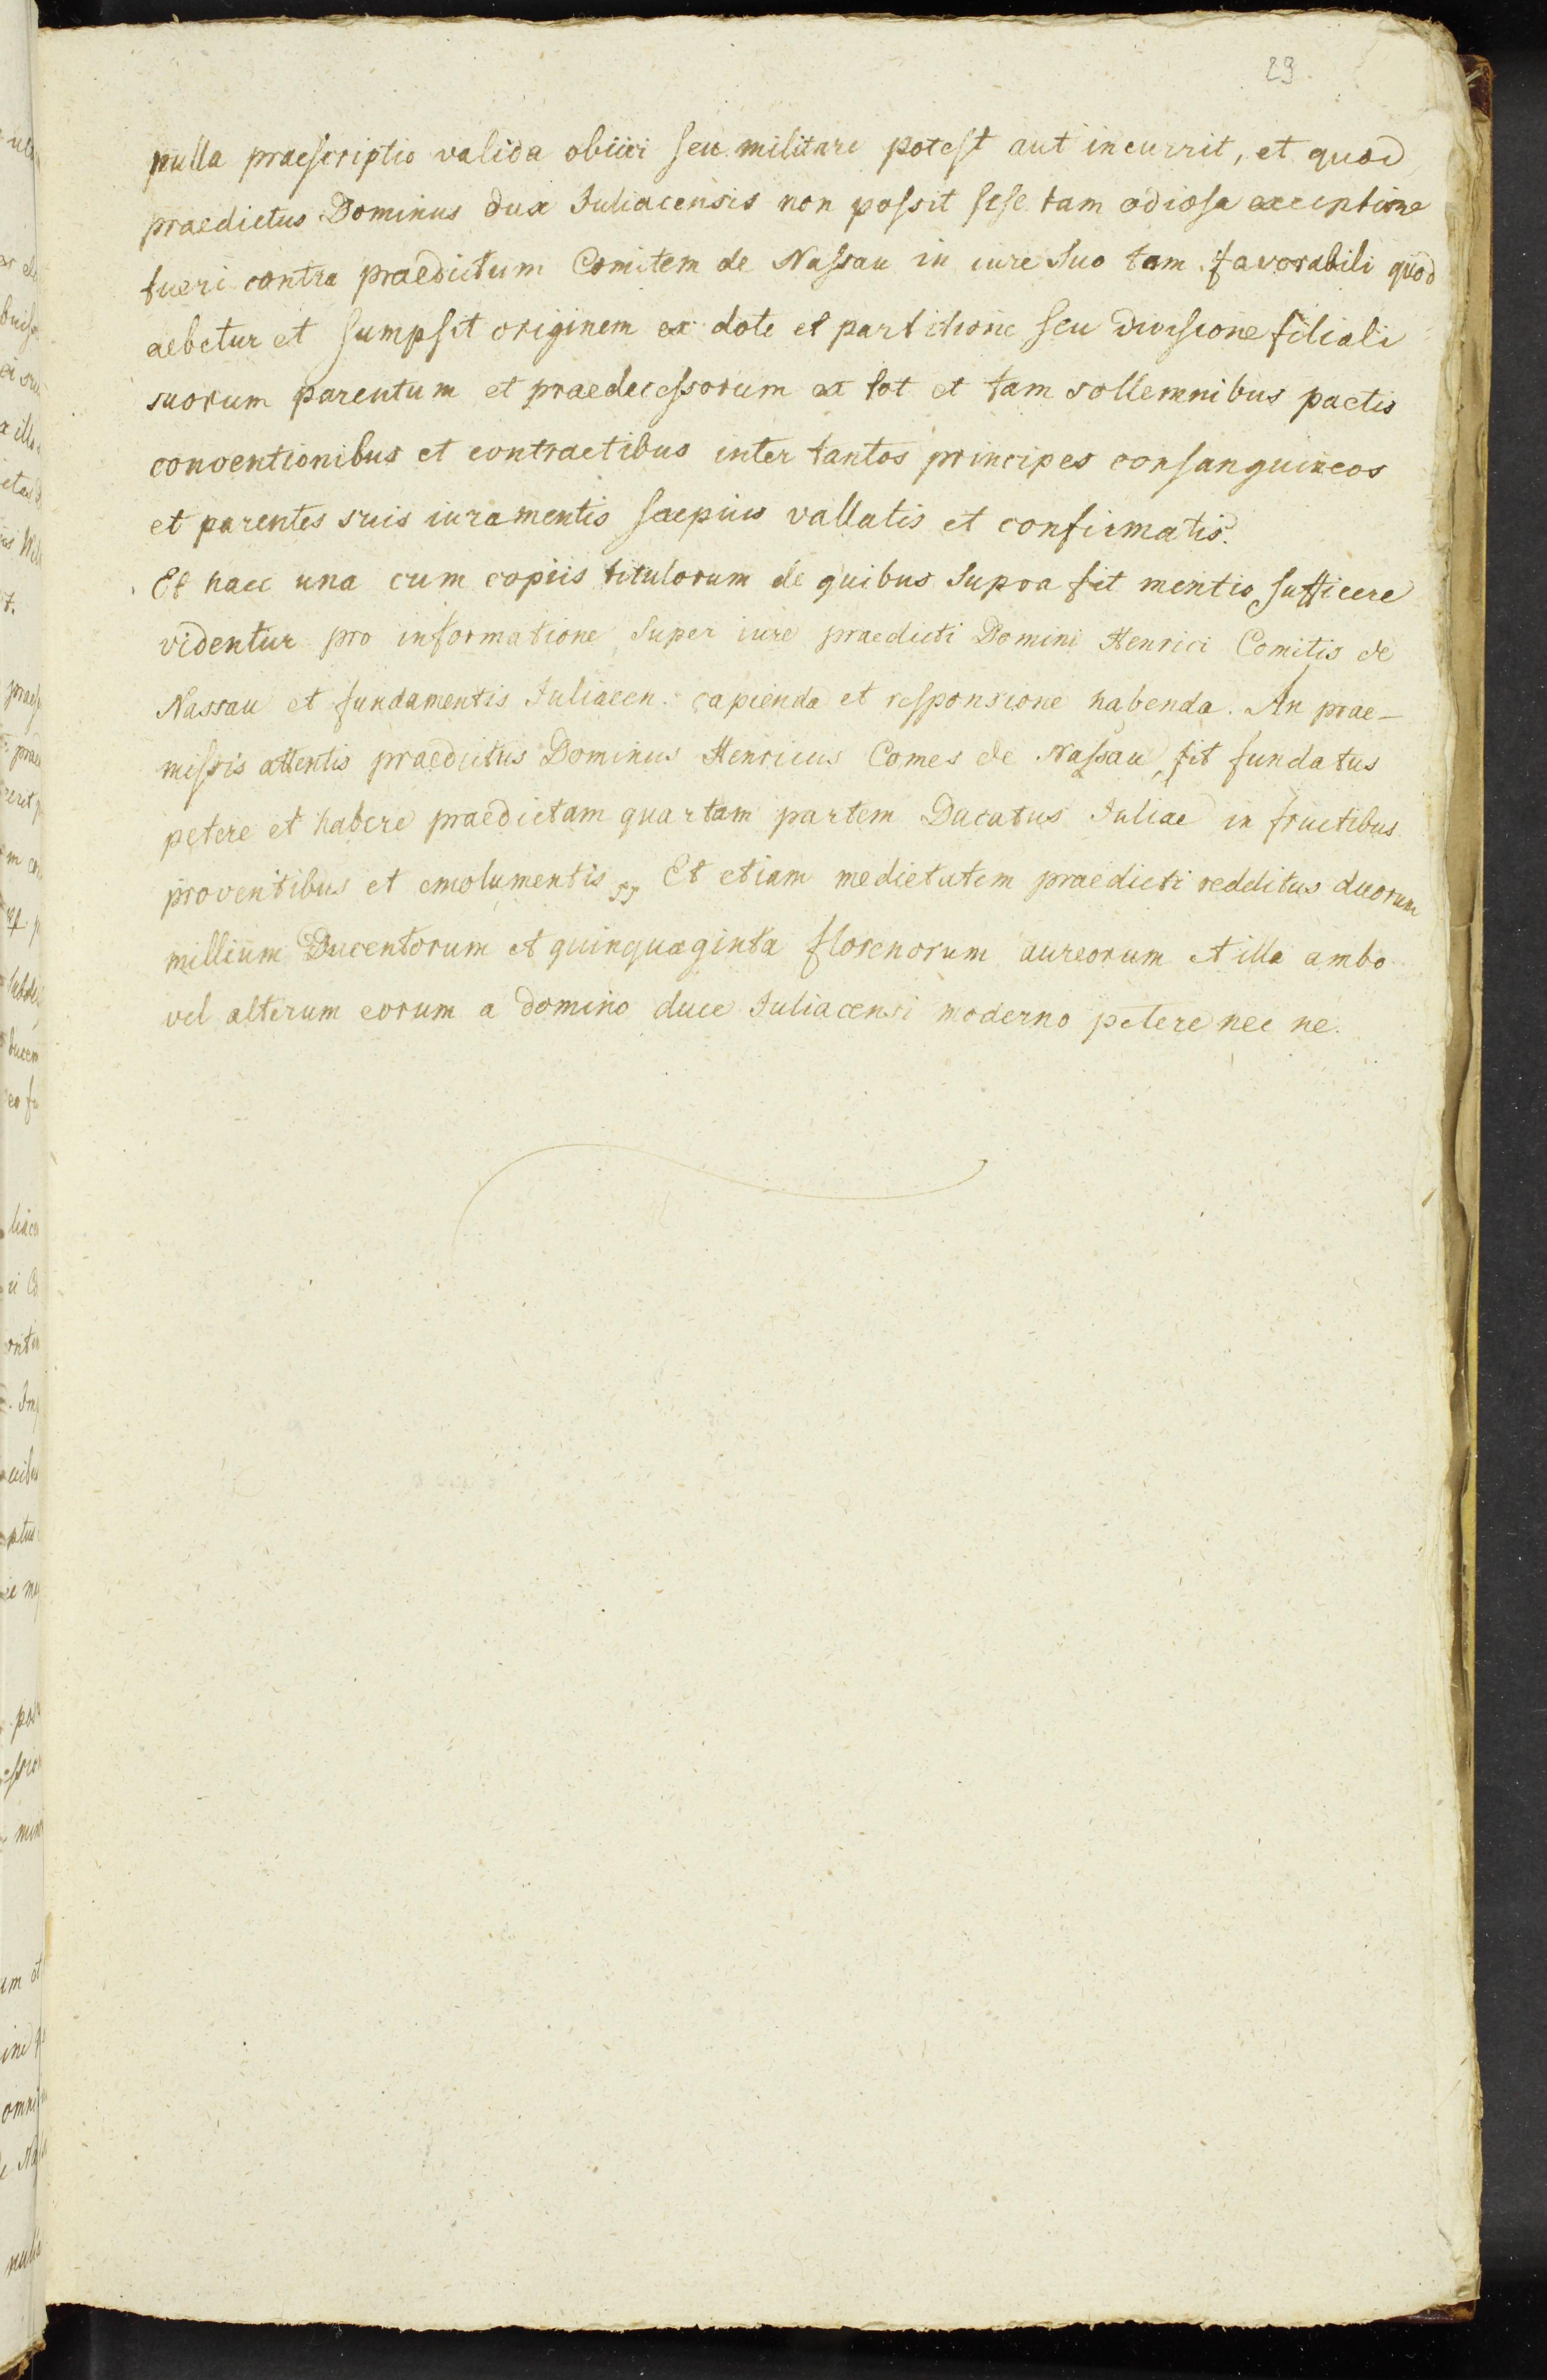 29.
nulla praescriptio valida obiici seu militare potest aut incurrit, et quod
praedictus Dominus dux Iuliacensis non possit sese tam odiosa exceptione
tueri contra praedictum Comitem de Nassau in iure suo tam favorabili quod
debetur et sumpsit originem ex dote et partitione seu divisione filiali
suorum parentum et praedecessorum ex tot et tam sollemnibus pactis
conventionibus et contractibus inter tantos principes consanguineos
et parentes suis iuramentis saepius vallatis et confirmatis.
Et haec una cum copiis titulorum de quibus supra fit mentio sufficere
videntur pro informatione super iure praedicti Domini Henrici Comitis de
Nassau et fundamentis Iuliacen. capienda et responsione habenda. An prae-
missis attentis praedictus Dominus Henricus Comes de Nassau, sit fundatus
petere et habere praedictam quartam partem Ducatus Iuliae in fructibus
proventibus et emolumentis Et etiam medietatem praedicti redditus duorum
millium Ducentorum et quinquaginta florenorum aureorum et illa ambo
vel alterum eorum a domino duce Iuliacensi moderno petere nec ne.